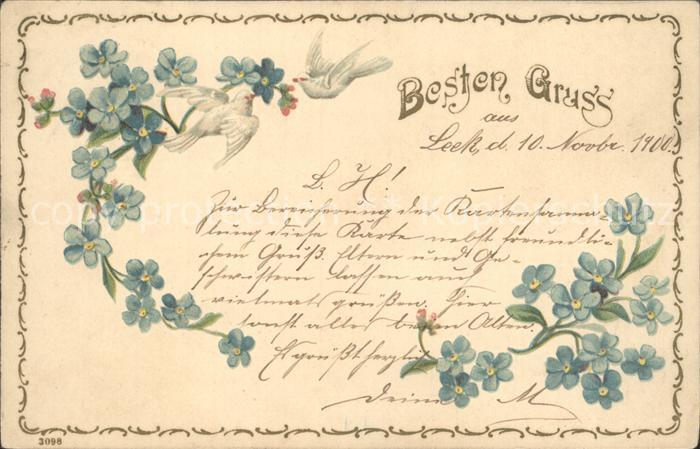 Besten Gruss
aus
Leek, d. 10. Novbr. 1900.
L. H.!
Zur Bereicherung der Kartensamm-
lung diese Karte nebst freundli-
chem Gruß. Eltern und Ge-
schwistern lassen auch
vielmals grüßen. Hier
sonst alles beim Alten.
Es grüßt herzlich
Deine M
3098